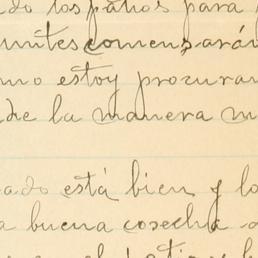 do los patios para
untes comensará
mo estoy procuran
de la manera m
ado está bien y lo
a buena cosecha